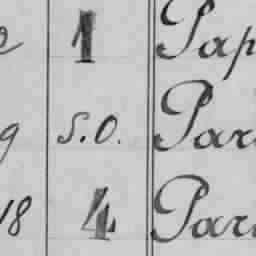 1 Pap
9 S.O. Par
18 4 Par